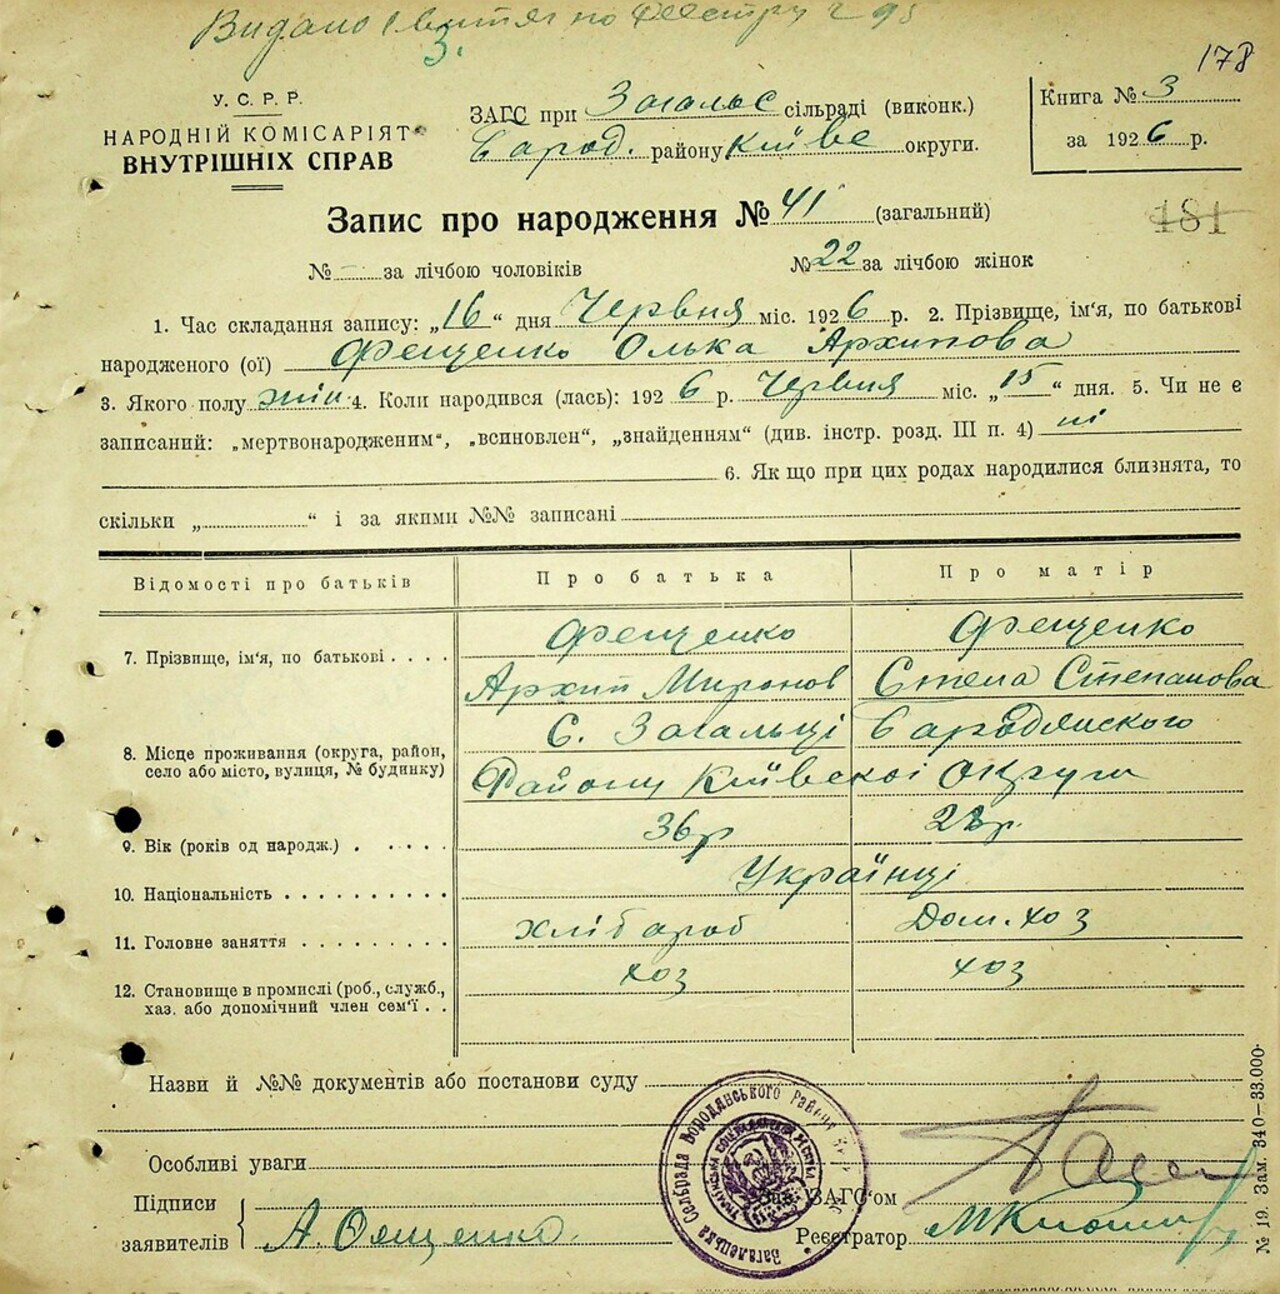 Видано витяг по Реєстру ч 98
3.
178
У. С. Р. Р.
НАРОДНІЙ КОМІСАРІЯТ
ВНУТРІШНІХ СПРАВ
ЗАГС при Загальс сільраді (виконк.)
Бород. району Київс округи.
Книга № 3
за 1926 р.
Запис про народження № 41 (загальний)
181
№ — за лічбою чоловіків № 22 за лічбою жінок
1. Час складання запису: „16“ дня Червня міс. 1926 р. 2. Прізвище, ім'я, по батькові
народженого (ої) Фещенко Олька Архипова
3. Якого полу жін. 4. Коли народився (лась): 1926 р. Червня міс. „15“ дня. 5. Чи не є
записаний: „мертвонародженим“, „всиновлен“, „знайденням“ (див. інстр. розд. III п. 4) ні
6. Як що при цих родах народилися близнята, то
скільки „ “ і за якими №№ записані
Відомості про батьків Про батька Про матір
7. Прізвище, ім'я, по батькові . . . . Фещенко Архип Миронов Фещенко Степанова
8. Місце проживання (округа, район,
село або місто, вулиця, № будинку) С. Загальці Бародянского
Району Київскоі Округи
9. Вік (років од народж.) . . . . . 36р 28р.
10. Національність . . . . . . . . . Українці
11. Головне заняття . . . . . . . . . хлібароб Дом. хоз
12. Становище в промислі (роб., служб.,
хаз. або допомічний член сем'ї . . хоз хоз
Назви й №№ документів або постанови суду
Особливі уваги
Підписи
заявителів А. Фещенко
Загалецька Сельрада Бородянського Району
Зав. ЗАГС'ом
Реєстратор
№ 19. Зам. 340—33.000.